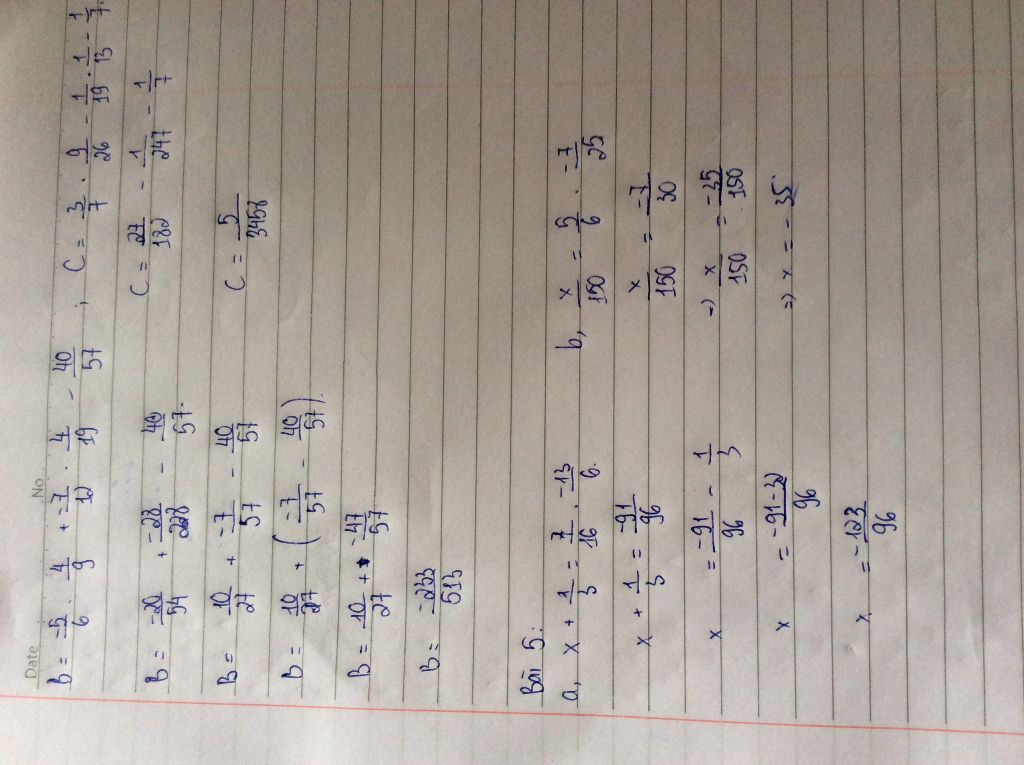 Date No
B = -5/6 . 4/9 + -7/12 . 4/19 - 40/57 ; C = 3/7 . 9/26 - 1/19 . 1/13 - 1/7.
B = -20/54 + -28/228 - 40/57. C = 27/182 - 1/247 - 1/7
B = -10/27 + -7/57 - 40/57 C = 5/3458
B = -10/27 + (-7/57 - 40/57).
B = -10/27 + -47/57
B = -233/513
Bài 5:
a, x + 1/3 = 7/16 . -13/6. b, x/150 = 5/6 . -7/25
x + 1/3 = -91/96 x/150 = -7/30
x = -91/96 - 1/3 => x/150 = -35/150
x = -91-32/96 => x = -35.
x = -123/96